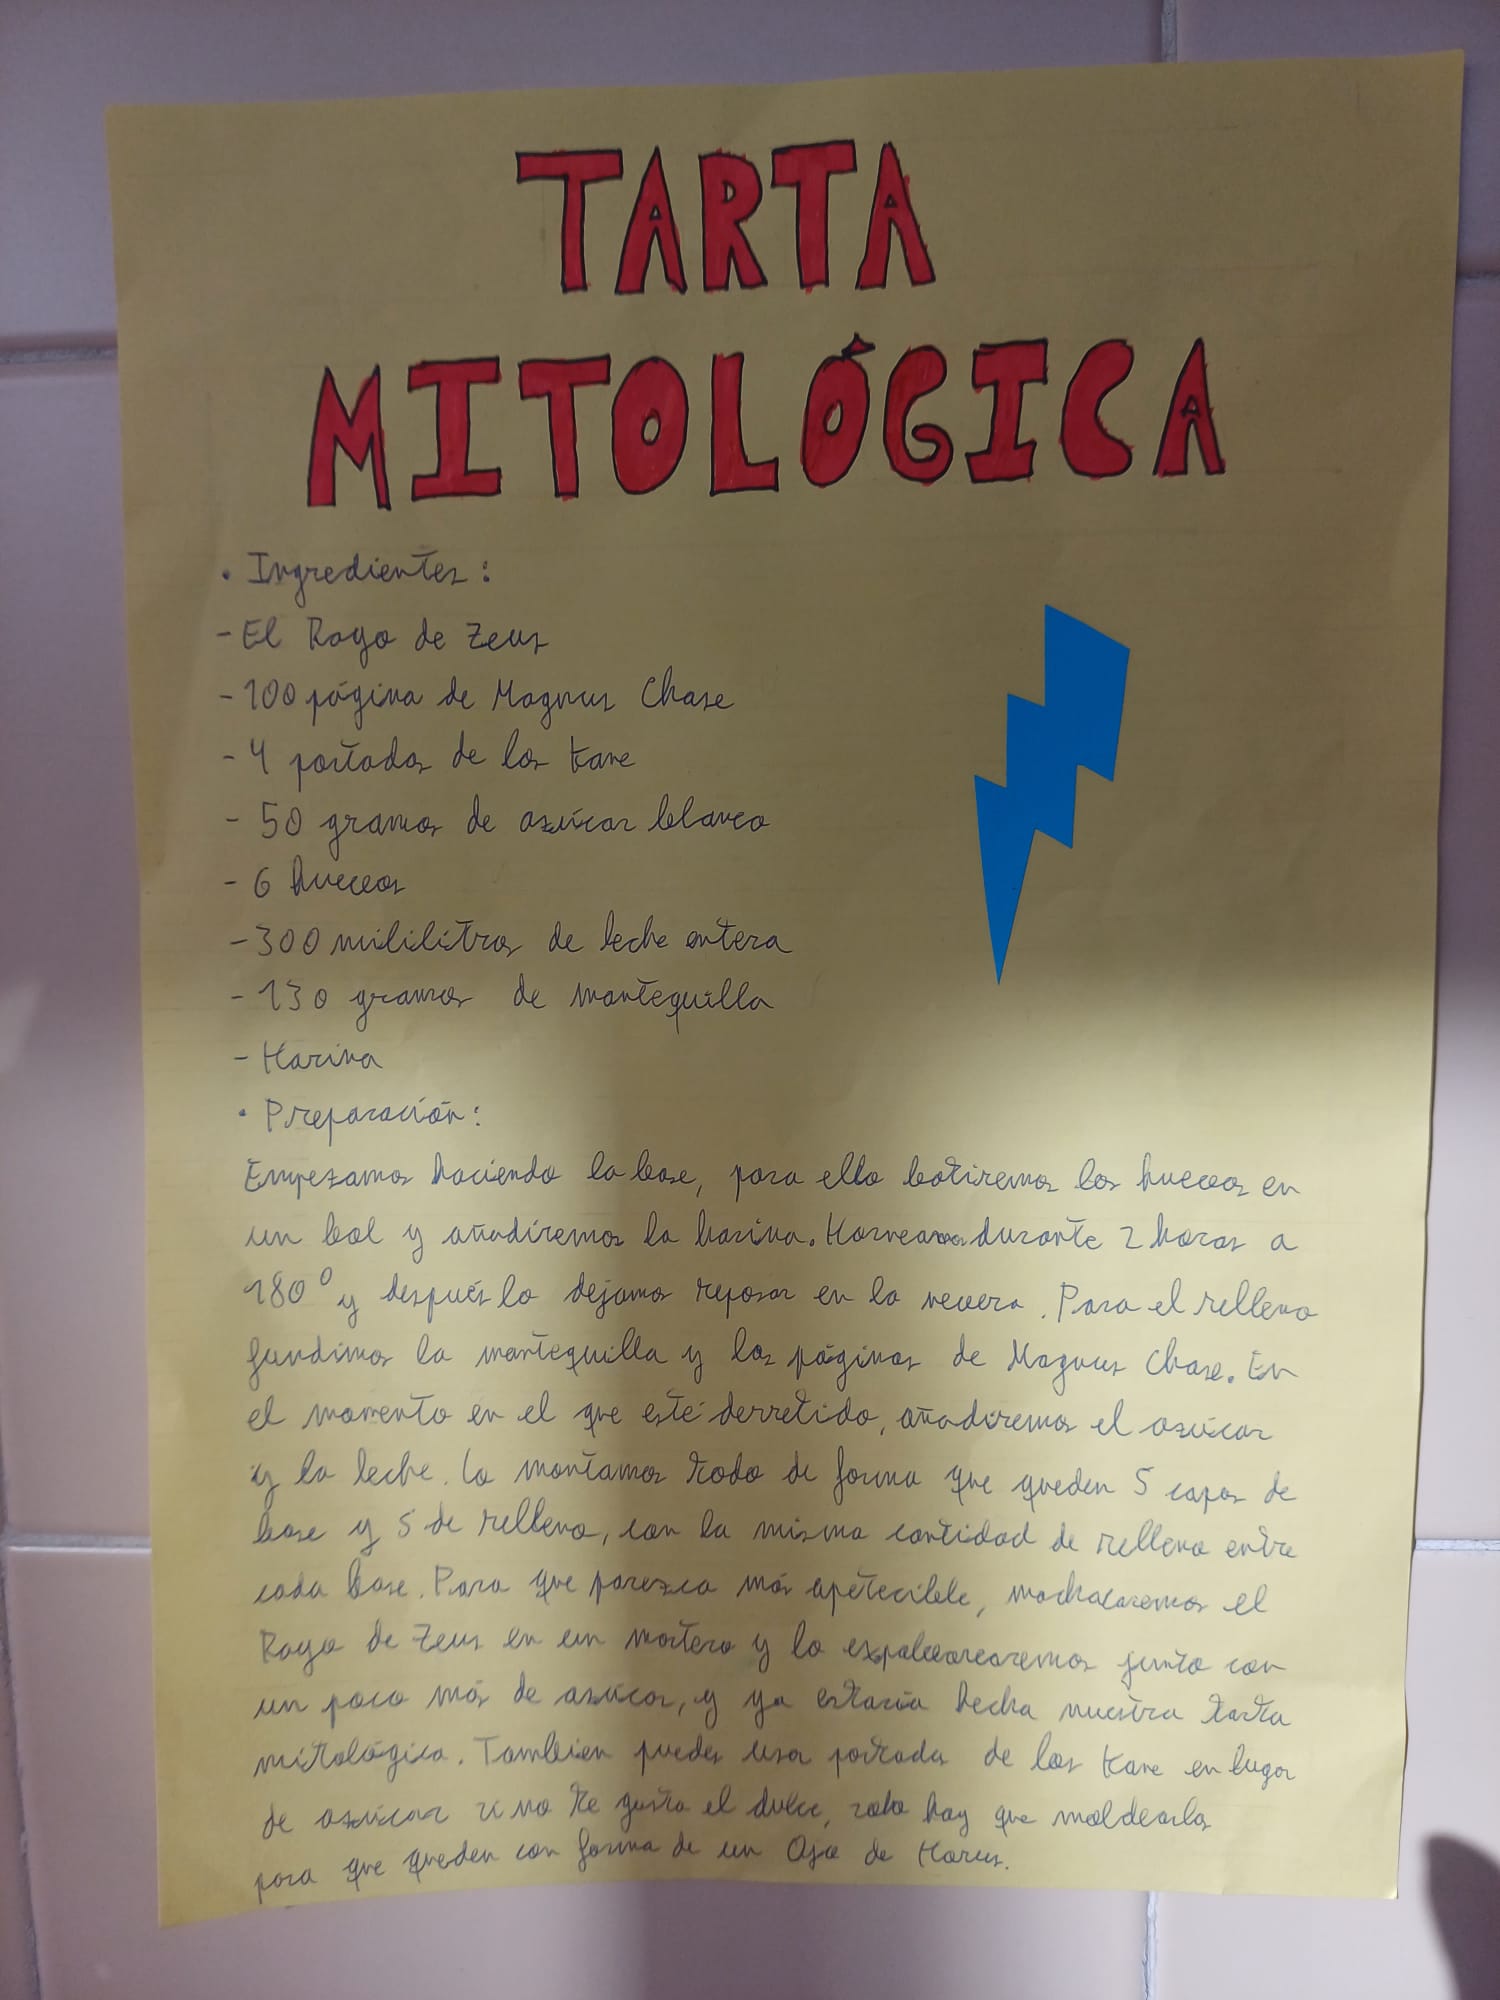 TARTA
MITOLÓGICA
• Ingredientes:
- El Rayo de Zeus
- 100 página de Magnus Chase
- 4 portadas de los Kane
- 50 gramos de azúcar blanco
- 6 huevos
- 300 mililitros de leche entera
- 130 gramos de mantequilla
- Harina
• Preparación:
Empezamos haciendo la base, para ello batiremos los huevos en
un bol y añadiremos la harina. Horneamos durante 2 horas a
180° y después lo dejamos reposar en la nevera. Para el relleno
fundimos la mantequilla y las páginas de Magnus Chase. En
el momento en el que esté derretido, añadiremos el azúcar
y la leche. Lo montamos todo de forma que queden 5 capas de
base y 5 de relleno, con la misma cantidad de relleno entre
cada base. Para que parezca más apetecible, machacaremos el
Rayo de Zeus en un mortero y lo espolvorearemos junto con
un poco más de azúcar, y ya estaría hecha nuestra tarta
mitológica. Tambien puedes usar portada de los Kane en lugar
de azúcar si no te gusta el dulce, solo hay que moldearlas
para que queden con forma de un Ojo de Horus.